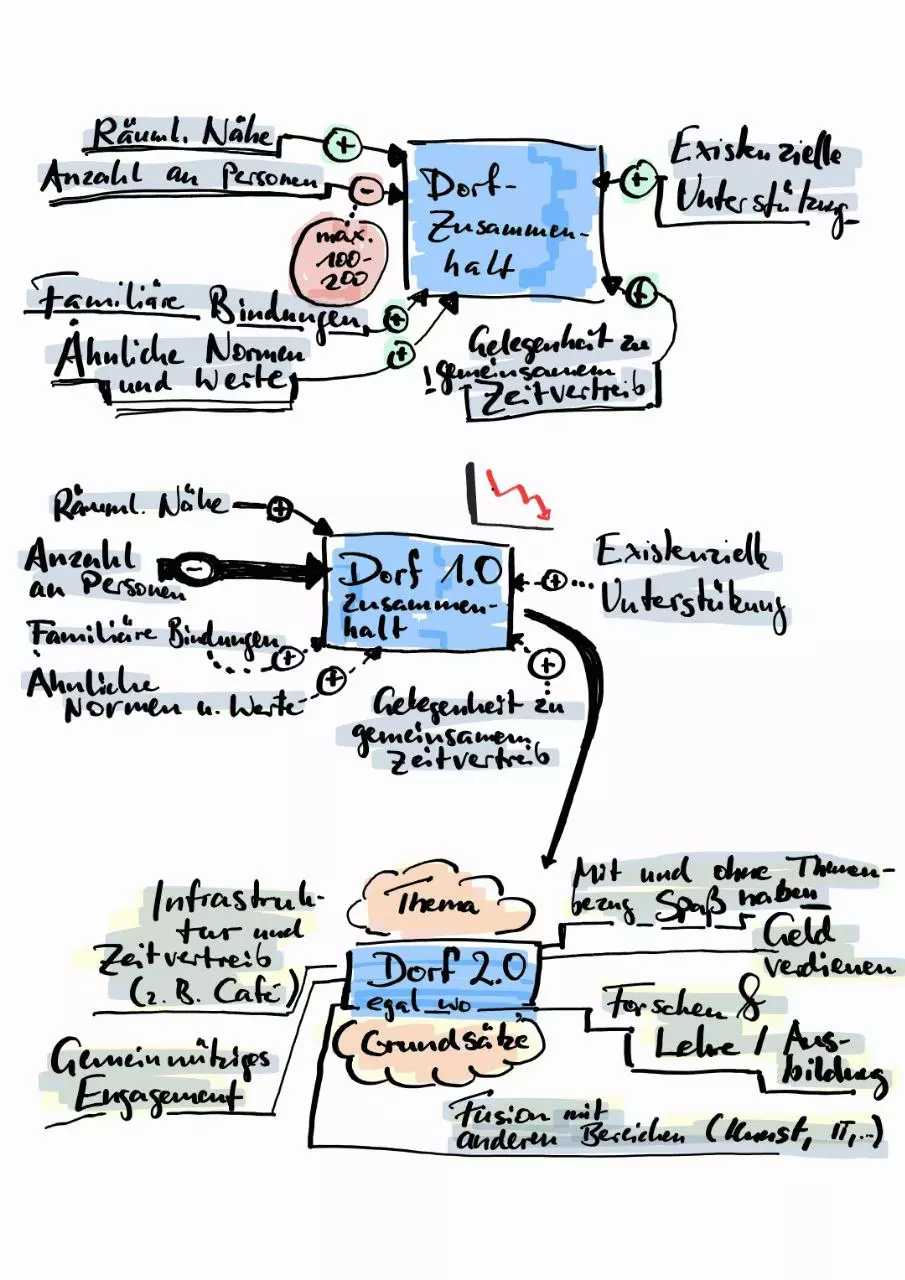 Räuml. Nähe
Anzahl an Personen
max.
100-
200
Familiäre Bindungen
Ähnliche Normen
und Werte
Dorf-
Zusammen-
halt
Existenzielle
Unterstützung
Gelegenheit zu
! gemeinsamem
Zeitvertreib
Räuml. Nähe
Anzahl
an Personen
Familiäre Bindungen
Ähnliche
Normen u. Werte
Dorf 1.0
zusammen-
halt
Existenzielle
Unterstützung
Gelegenheit zu
gemeinsamem
Zeitvertreib
Infrastruk-
tur und
Zeitvertreib
(z. B. Café)
Gemeinnütziges
Engagement
Thema
Dorf 2.0
egal wo
Grundsätze
Mit und ohne Themen-
bezug Spaß haben
Geld
verdienen
Forschen &
Lehre / Aus-
bildung
Fusion mit
anderen Bereichen (Kunst, IT,..)